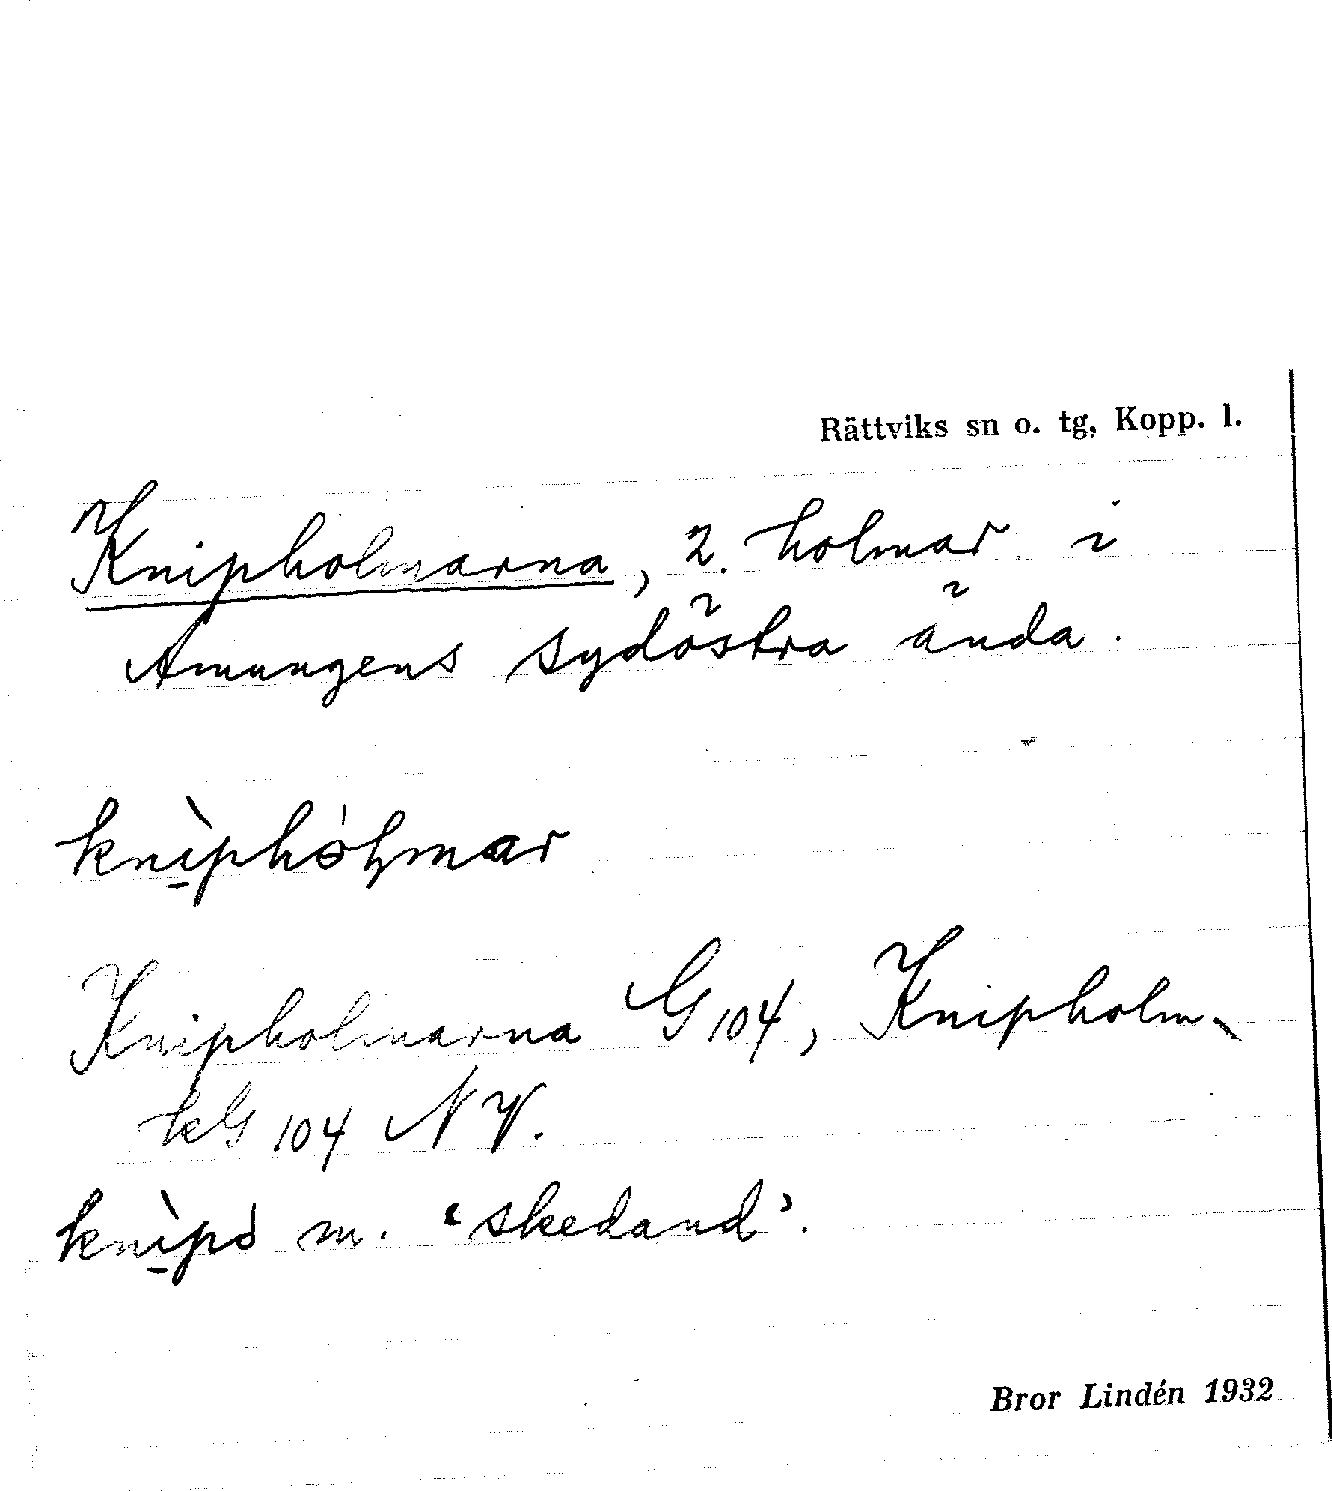 Rättviks sn o. tg, Kopp. l.
Knipholmarna, 2 holmar i
Amungens sydöstra ända.
knìphòlmar
Knipholmarna G 104, Knipholm-
kG 104 NV.
m. ‘skedand’.
Bror Lindén 1932